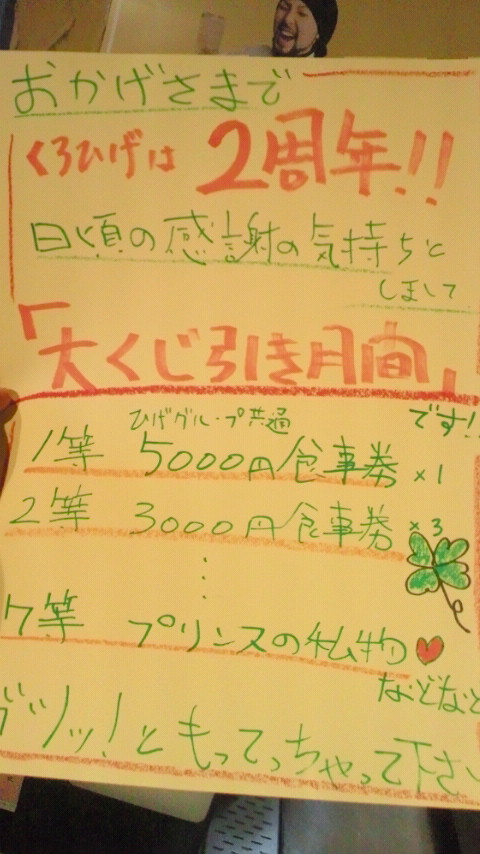 おかげさまで
くろひげは 2周年!!
日頃の感謝の気持ちと
しまして
「大くじ引き月間」
です!!
ひげグループ共通
1等 5000円食事券 ×1
2等 3000円食事券 ×3
⋮
7等 プリンスの私物♥
などなど
ガツッ!ともってっちゃって下さい